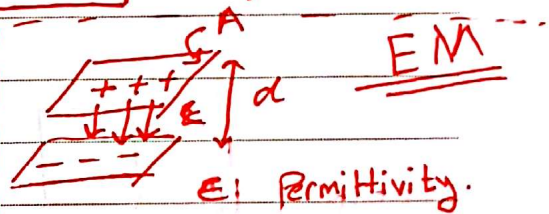 A
EM
+ + +
E d
- - -
E: Permittivity.